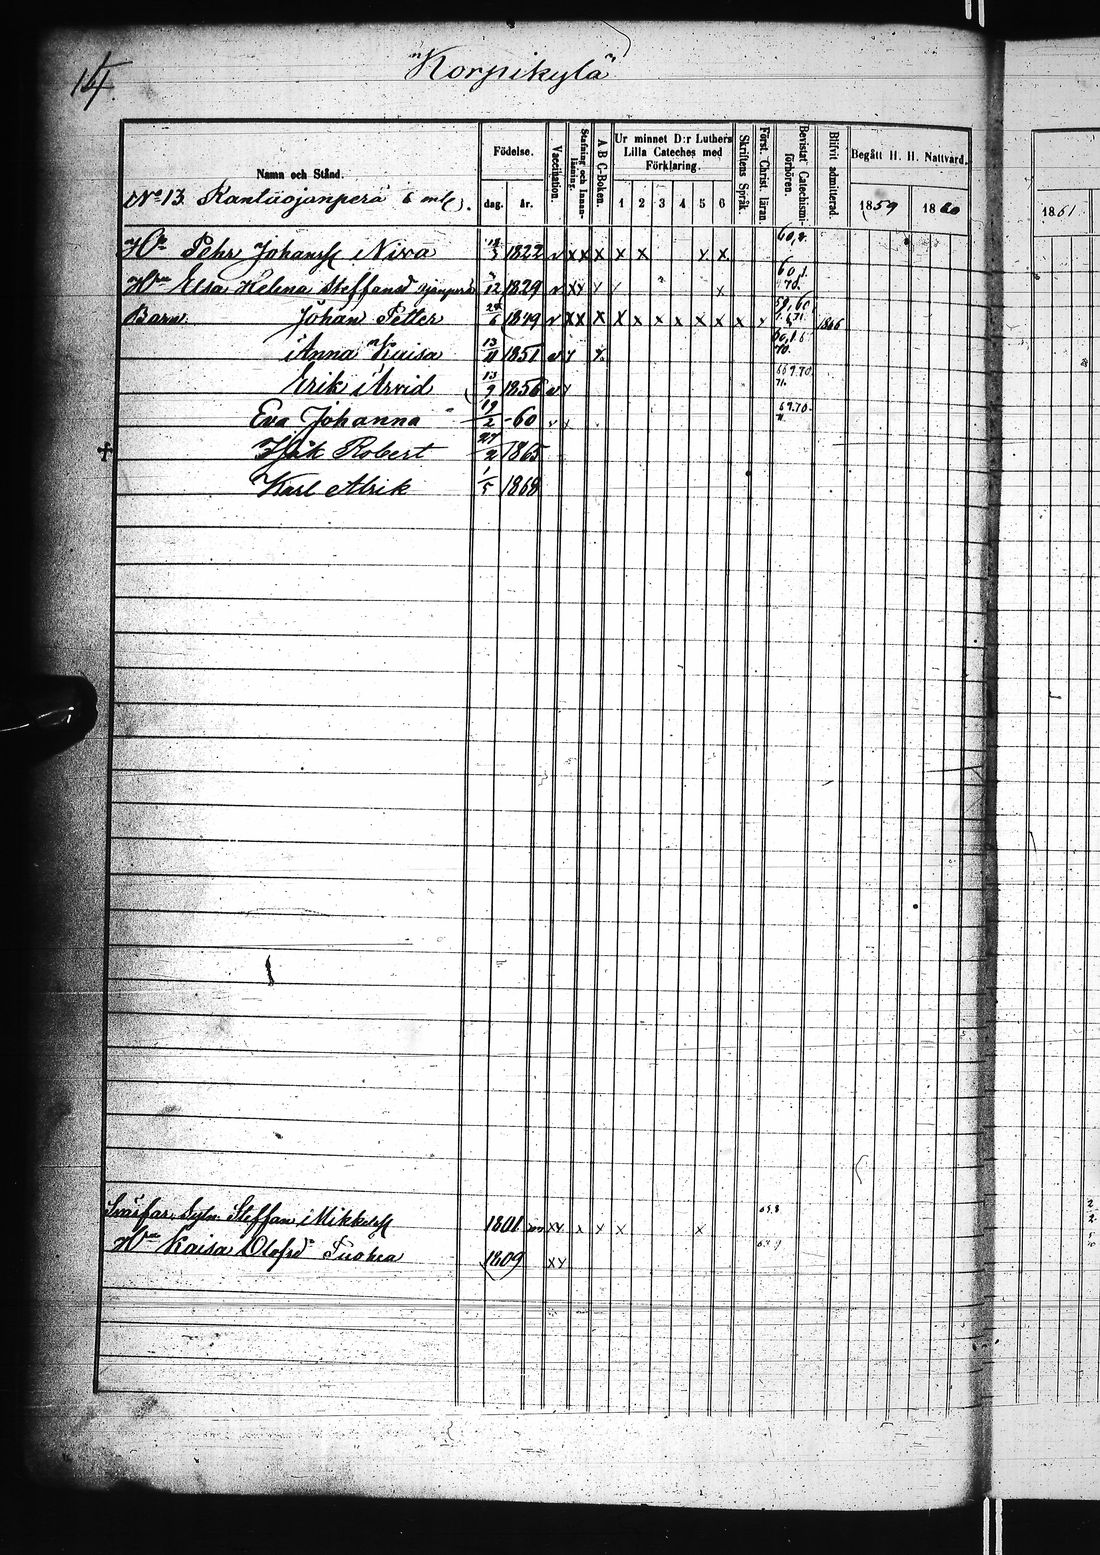 14.
"Korpikylä"
Namn och Stånd.
Födelse.
dag. år.
Vaccination.
Stafning och Innanläsning.
A B C-Boken.
Ur minnet D:r Luthers Lilla Cateches med Förklaring.
1 2 3 4 5 6
Skriftens Språk.
Först. Christ. läran.
Bevistat Catechismiförhören.
Blifvit admitterad.
Begått H. H. Nattvard.
1859 1860
1861
No 13. 6 mtl.
Pehr Johanss Niva 1822 v x x x x x x x 60,
Elsa Helena Steffansd 12 1829 v x 60, 70.
Barn. Johan Petter 24/6 1849 v x x x x x x x x x x 59, 60, 1866
Anna Kaisa 13/11 1851 70.
Erik Arvid 13/9 1856 69.70. 71.
Eva Johanna 19/2 -60 69.70.
+ Isak Robert 27/2 1865
Karl Alrik 1/5 1868
Svärfar. Steffan Mikkelss 1801 x x x x
Kaisa Olofsd 1809 x